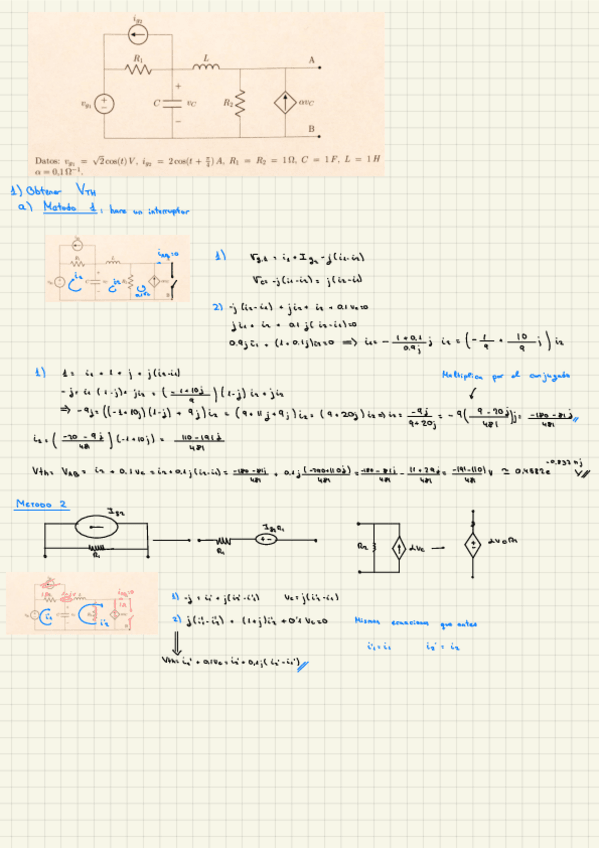 i_{g2}
R₁
L
A
v_{g1}
C
v_C
R₂
αv_C
B
Datos: v_{g1} = √2 cos(t) V, i_{g2} = 2 cos(t + π/4) A, R₁ = R₂ = 1 Ω, C = 1 F, L = 1 H
α = 0,1 Ω⁻¹.
1) Obtener V_TH
a) Metodo 1: hare un interruptor
1) V_{g1} = i₁ + I_{g2} - j(i₁-i₂)
V_C = -j(i₁-i₂) = j(i₂-i₁)
2) -j(i₂-i₁) + ji₂ + i₂ + 0.1 v_C = 0
ji₁ + i₂ + 0.1 j(i₂-i₁) = 0
0.9ji₁ + (1+0.1j)i₂ = 0 ⟹ i₁ = - (1+0.1j)/(0.9j) i₂ = (-1/9 + 10/9 j) i₂
1) 1 = i₁ + 1 + j + j(i₂-i₁)
Multiplica por el conjugado
-j = i₁(1-j) + ji₂ = ((-1+10j)/9)(1-j) i₂ + ji₂
⟹ -9j = ((-1+10j)(1-j) + 9j) i₂ = (9+11j+9j) i₂ = (9+20j) i₂ ⟹ i₂ = -9j/(9+20j) = -9((9-20j)/481)j = (-180-81j)/481
i₁ = ((-20-9j)/481)(-1+10j) = (110-191j)/481
V_TH = V_AB = i₂ + 0.1 v_C = i₂ + 0.1j(i₂-i₁) = (-180-81j)/481 + 0.1j (-290+110j)/481 = (-180-81j)/481 - (11+29j)/481 = (-191-110j)/481 V
Metodo 2
I_{g2}
R₁
R₁
I_{g2}R₁
R₂
αv_C
αv_C R₂
1) -j = i₁' + j(i₂'-i₁') v_C = j(i₂'-i₁')
2) j(i₁'-i₂') + (1+j)i₂' + 0'1 v_C = 0
Mismas ecuaciones que antes
i₁' = i₁ i₂' = i₂
V_TH = i₂' + 0.1v_C = i₂' + 0.1j(i₂'-i₁')